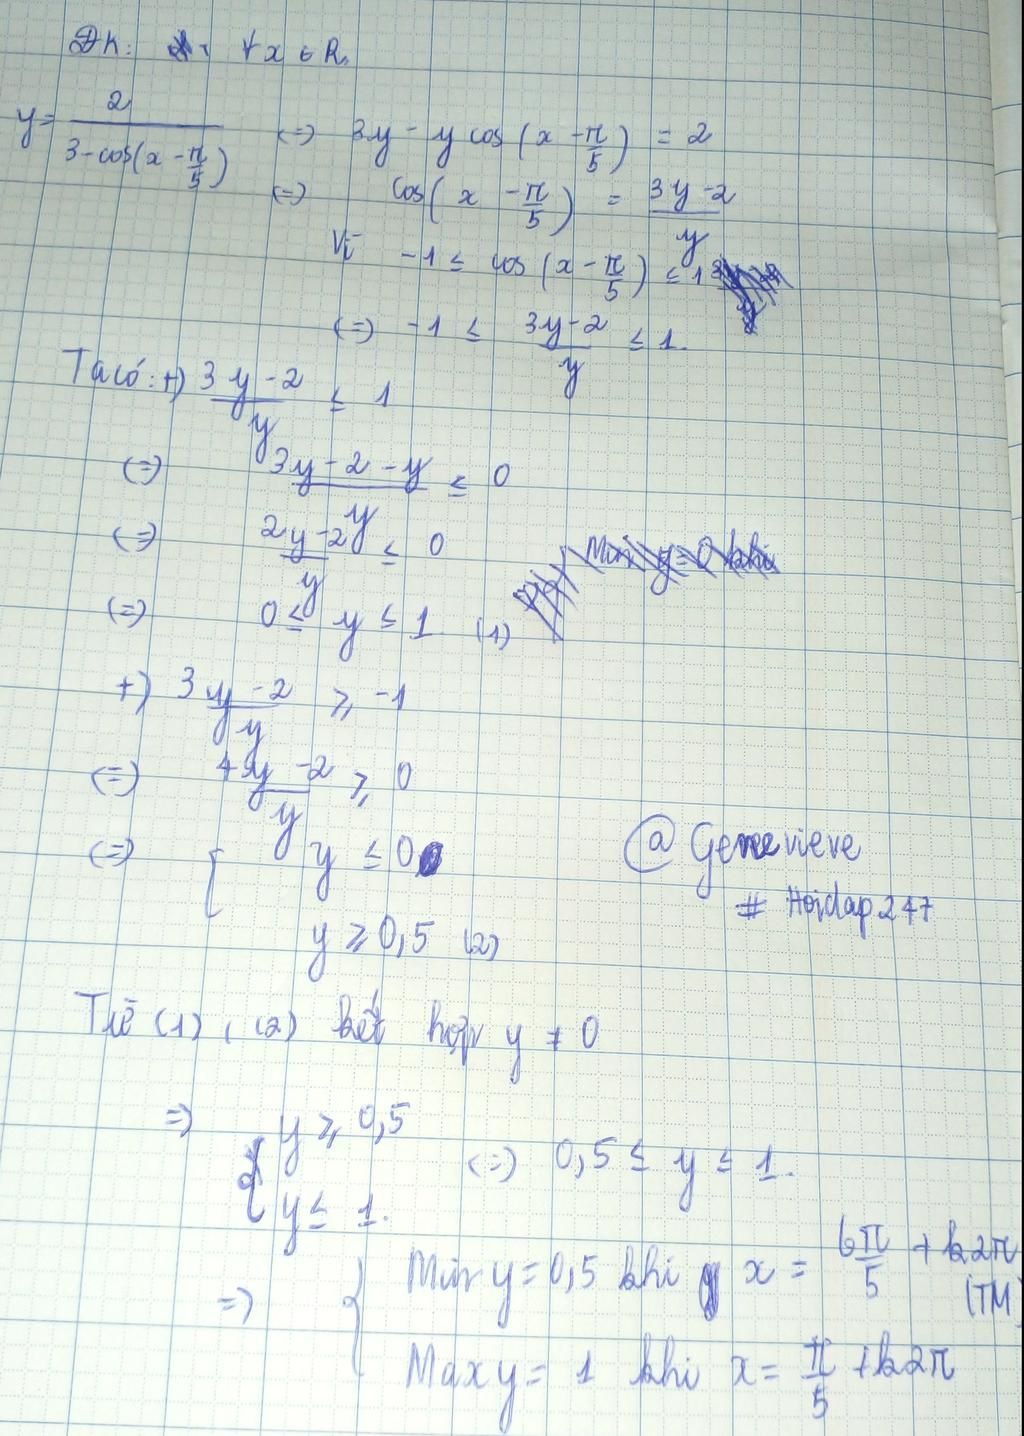 ĐK: ∀x ∈ R.
y = 2/(3-cos(x - π/5)) <=> 3y - y cos(x - π/5) = 2
<=> cos(x - π/5) = (3y-2)/y
Vì -1 ≤ cos(x - π/5) ≤ 1
<=> -1 ≤ (3y-2)/y ≤ 1.
Ta có: +) (3y-2)/y ≤ 1
<=> (3y-2-y)/y ≤ 0
<=> (2y-2)/y ≤ 0 Min y=0 khi
<=> 0 ≤ y ≤ 1 (1)
+) (3y-2)/y ≥ -1
<=> (4y-2)/y ≥ 0
<=> [ y ≤ 0
@ Genevieve
# Hoidap247
y ≥ 0,5 (2)
Từ (1), (2) kết hợp y ≠ 0
=> { y ≥ 0,5
y ≤ 1. <=> 0,5 ≤ y ≤ 1.
=> { Min y = 0,5 khi x = 6π/5 + k2π (TM)
Max y = 1 khi x = π/5 + k2π